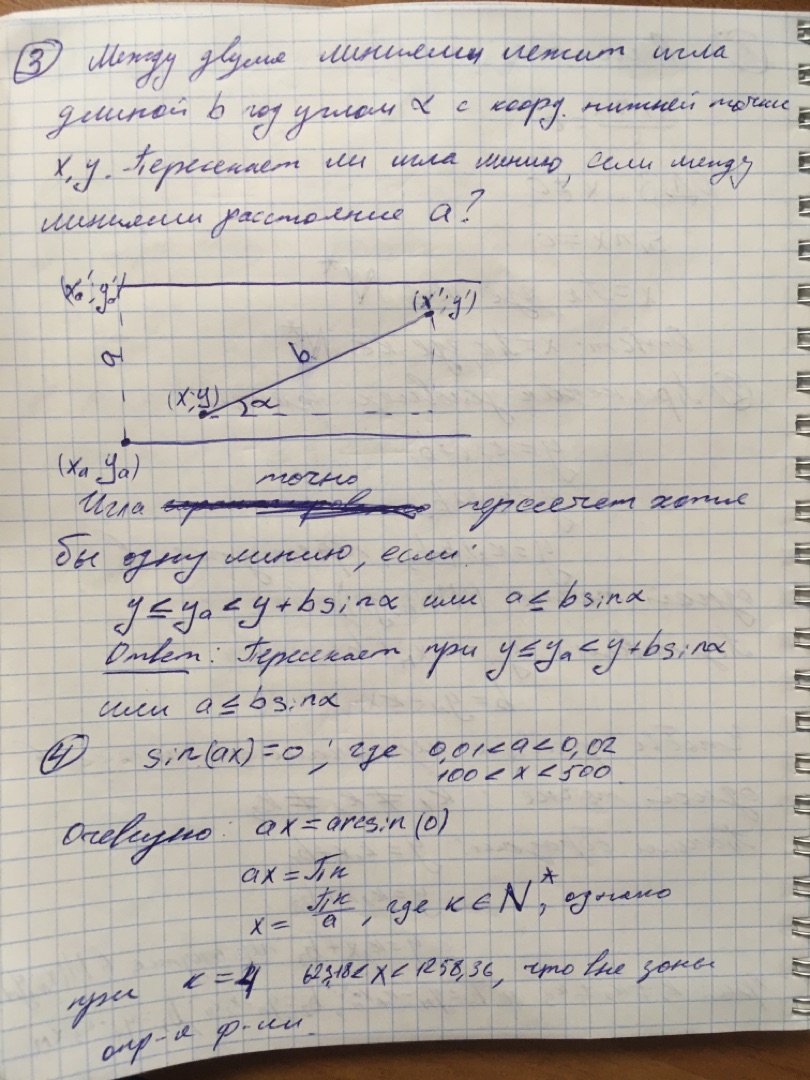 3 Между двумя линиями лежит игла
длиной b под углом α с коорд. нижней точки
x, y. Пересекает ли игла линию, если между
линиями расстояние a?
(xa'; ya')
(x'; y')
a
b
(x; y)
α
(xa ya)
точно
Игла пересечет хотя
бы одну линию, если:
y ≤ ya < y + b sinα или a ≤ b sinα
Ответ: Пересекает, при y ≤ ya < y + b sinα
или a ≤ b sinα
4 sin(ax) = 0; где 0,01 < a < 0,02
100 < x < 500
Очевидно: ax = arcsin(0)
ax = πk
x = πk/a, где k ∈ N*, однако
при k = 4 < x < 1258,36, что вне зоны
опр-я ф-ии.